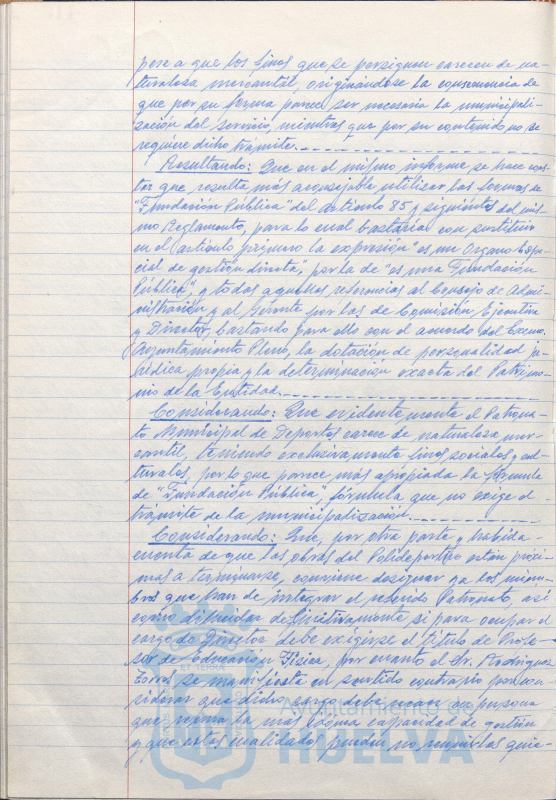 pese a que los fines que se persiguen carecen de na-
turaleza mercantil, originándose la consecuencia de
que por su forma parece ser necesaria la municipali-
zación del servicio, mientras que por su contenido no se
requiere dicho trámite.
Resultando: Que en el mismo informe se hace cons-
tar que resulta más aconsejable utilizar las formas de
"Fundación Pública" del artículo 85 y siguientes del mis-
mo Reglamento, para lo cual bastaría con sustituir
en el artículo primero la expresión "es un Organo Espe-
cial de gestión directa", por la de "es una Fundación
Pública", y todas aquellas referencias al Consejo de Admi-
nistración y al Gerente por las de Comisión Ejecutiva
y Director, bastando para ello con el acuerdo del Excmo.
Ayuntamiento Pleno, la dotación de personalidad ju-
rídica propia y la determinación exacta del Patrimo-
nio de la Entidad.
Considerando: Que evidentemente el Patrona-
to Municipal de Deportes carece de naturaleza mer-
cantil, teniendo exclusivamente fines sociales y cul-
turales, por lo que parece más apropiada la fórmula
de "Fundación Pública", fórmula que no exige el
trámite de la municipalización.
Considerando: Que, por otra parte y habida
cuenta de que las obras del Polideportivo están próxi-
mas a terminarse, conviene designar ya los miem-
bros que han de integrar el referido Patronato, así
como dilucidar definitivamente si para ocupar el
cargo de Director debe exigirse el título de Profe-
sor de Educación Física, por cuanto el Sr. Rodríguez
Torres se manifiesta en sentido contrario por con-
siderar que dicho cargo debe recaer en persona
que reúna la más idónea capacidad de gestión
y que estas cualidades pueden no reunirlas quie-
Ayuntamiento de
HUELVA